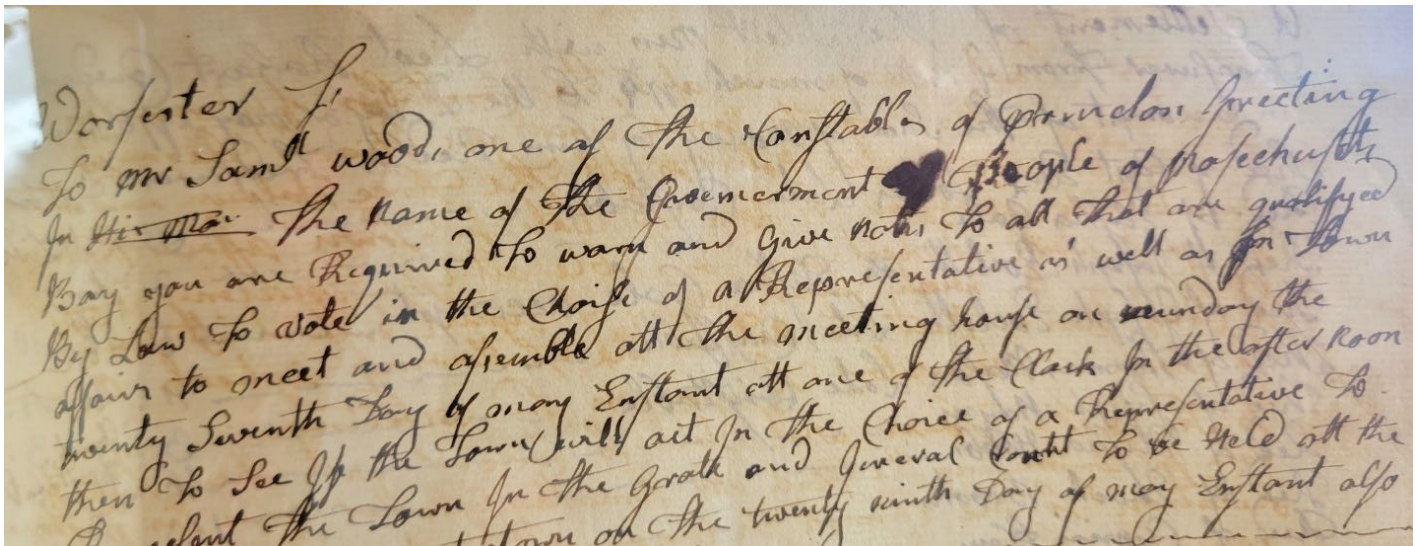 Worsester Ss
To mr Samll wood, one of the Constables of Mendon Greeting
In His Ma the name of the Goverment People of Masechusitts
Bay you are Required to warn and Give notis To all That are qualifyed
By Law To vote in the Choise of a Representative as well as In Town
affairs to meet and assemble att the meeting house on munday the
twenty Seventh Day of may Enstant att one of the Clack In the after noon
then To See If the Town will act In the Choice of a Representative To
the Town In the Grate and General Court To be Held att the
on the twenty ninth Day of may Enstant also